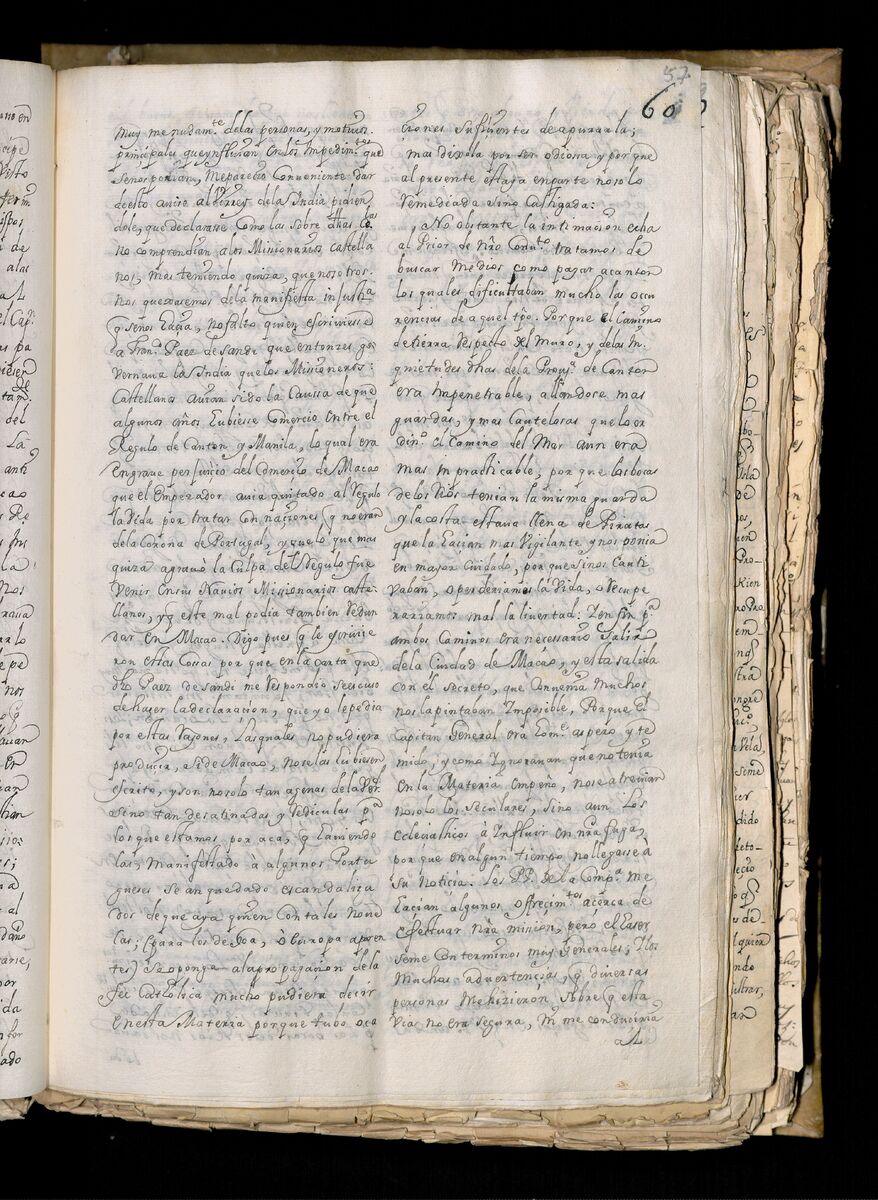 57
60
muy menudam.te delas personas, y motivos
principales queynfluian en los Impedim.tos que
Senos ponian, Mepareció Conueniente dar
deesto auiso al Virrey dela India pidien
dole, que declarasse Como las Sobre dhas
no comprendian alos Missionarios castella
nos, mas temiendo quiza, que nosotros
nos quexaremos dela manifiesta injustia
q senos haçia, nofaltó quien escriviesse
a Fran.co Paez de Sandi que entonzes go
vernaua la India quelos Missioneros
Castellanos auian sido la Caussa deque
algunos años hubiesse Comercio entre el
Regulo de Canton y Manila, lo qual era
engraue perjuiçio del Comercio de Macao
que el Emperador auia quitado al Regulo
la Vida por tratar con naçiones q no eran
dela Corona de Portugal, y que lo que mas
quiza agrauó la Culpa del Regulo fue
Venir ensus Nauios Missionarios caste
llanos, y q este mal podia tambien Redun
dar en Macao. Digo pues q le escriuie
ron estas Cosas por que en la carta que
dho Paez de Sandi me Respondió seescuso
de hazer la declaracion, que yo le pedia
por estas Raçones, Lasquales no pudiera
produçir, side Macao, nose las hubiesen
escrito, y son no solo tan agenas dela Ver.
sino tan desatinadas y Rediculas p.a
los que estamos por aca, q hauiendo
las, Manifestado à algunos Portu
gueses se an quedado escandaliça
dos de que aya quien Con tales Noue
las; (para los de Goa, ò Europa aparen
tes) Se oponga alapropagaçion de la
feè Catholica mucho pudiera decir
enesta Materia porque tubo oca
çiones Sufiçientes de apurarla;
mas dexola por ser odiosa y por que
al presente estaya enparte no solo
Remediada sino Castigada:
y No obstante la intimaçion echa
al Prior de Nrõ Conu.to tratamos de
buscar Medios como pasar a canton
los quales dificultaban mucho las occu
rencias de aquel tpõ. Porque el Camino
de tierra Respecto del Muro, y delas In
quietudes dhas dela Prou.a de Canton
era Impenetrable, allandose mas
guardas, y mas Cautelosas quelo or
din.o el Camino del Mar aun era
mas inpracticable, por que las bocas
de los Rios tenian la misma guarda
y la costa estaua llena de Piratas
que la haçian mas Vigilante y nos ponia
en mayor Cuidado, por que sinos Cauti
vaban, o perderiamos la Vida, o Recupe
rariamos mal la liuertad: Y en fin p.a
ambos Caminos era necessario Salir
dela Ciudad de Macao, y esta salida
con el secreto, que Conuenia Muchos
nos la pintaban Imposible, Porque el
Capitan General era hom.e aspero y te
mido, y como Ignorauan que no tenia
en la Materia empeño, nose atreuian
nosolo los seculares, Sino aun los
eclesiasticos à Influir en nrã fuga,
por que en algun tiempo no llegasse a
Su Noticia. Los PP. de la Comp.a me
haçian algunos offrecim.tos açerca de
efectuar Nrã mision, pero el haser
seme Con terminos muy Generales, Y los
Muchas aduertençias, q diuersas
personas Mehizieron, Sobre q esta
via no era segura, Ni me conduciria
al